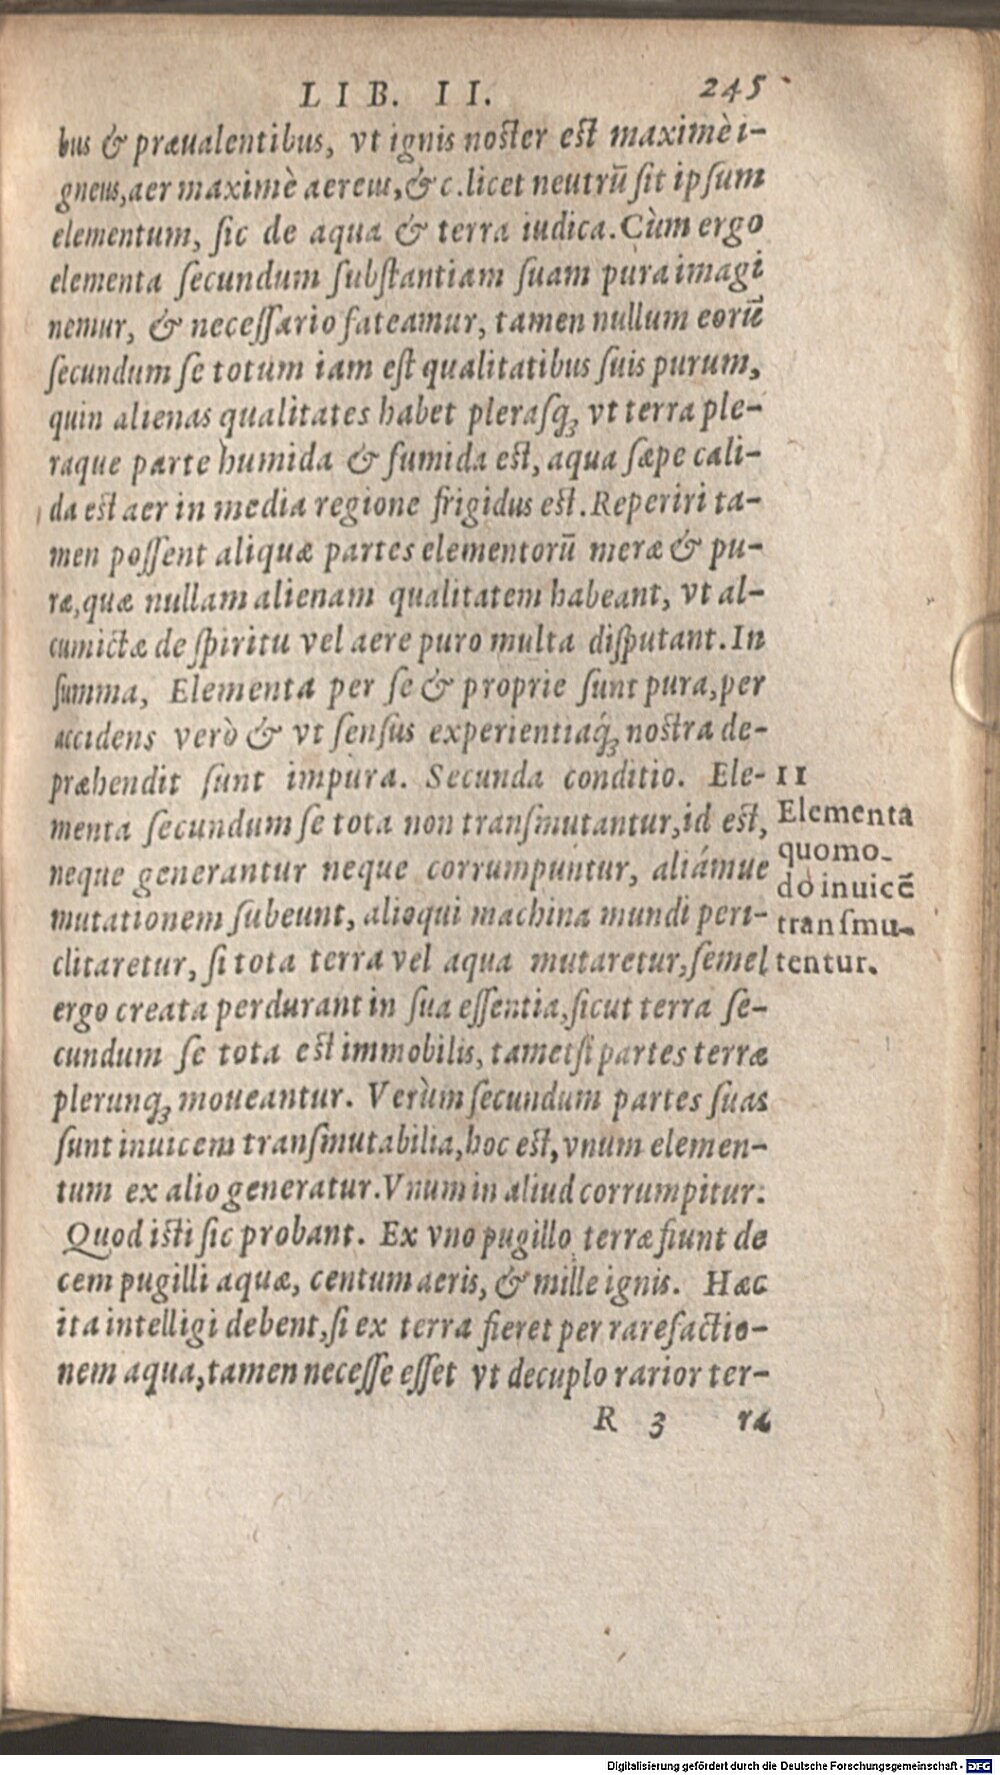 LIB. II. 245
bus & præualentibus, vt ignis noster est maximè i-
gneus, aer maximè aereus, & c. licet neutrū sit ipsum
elementum, sic de aqua & terra iudica. Cùm ergo
elementa secundum substantiam suam pura imagi
nemur, & necessario fateamur, tamen nullum eorū
secundum se totum iam est qualitatibus suis purum,
quin alienas qualitates habet plerasq́ꝫ vt terra ple-
raque parte humida & fumida est, aqua sæpe cali-
da est aer in media regione frigidus est. Reperiri ta-
men possent aliquæ partes elementorū meræ & pu-
ræ, quæ nullam alienam qualitatem habeant, vt al-
cumictæ de spiritu vel aere puro multa disputant. In
summa, Elementa per se & proprie sunt pura, per
accidens verò & vt sensus experientiaq́ꝫ nostra de-
præhendit sunt impura. Secunda conditio. Ele-
menta secundum se tota non transmutantur, id est,
neque generantur neque corrumpuntur, aliámue
mutationem subeunt, alioqui machina mundi peri-
clitaretur, si tota terra vel aqua mutaretur, semel
ergo creata perdurant in sua essentia, sicut terra se-
cundum se tota est immobilis, tametsi partes terræ
plerunqꝫ moueantur. Verùm secundum partes suas
sunt inuicem transmutabilia, hoc est, vnum elemen-
tum ex alio generatur. Vnum in aliud corrumpitur.
Quod isti sic probant. Ex vno pugillo terræ fiunt de
cem pugilli aquæ, centum aeris, & mille ignis. Hæc
ita intelligi debent, si ex terra fieret per rarefactio-
nem aqua, tamen necesse esset vt decuplo rarior ter-
R 3 ra
II
Elementa
quomo-
do inuicē
transmu-
tentur.
Digitalisierung gefördert durch die Deutsche Forschungsgemeinschaft - DFG